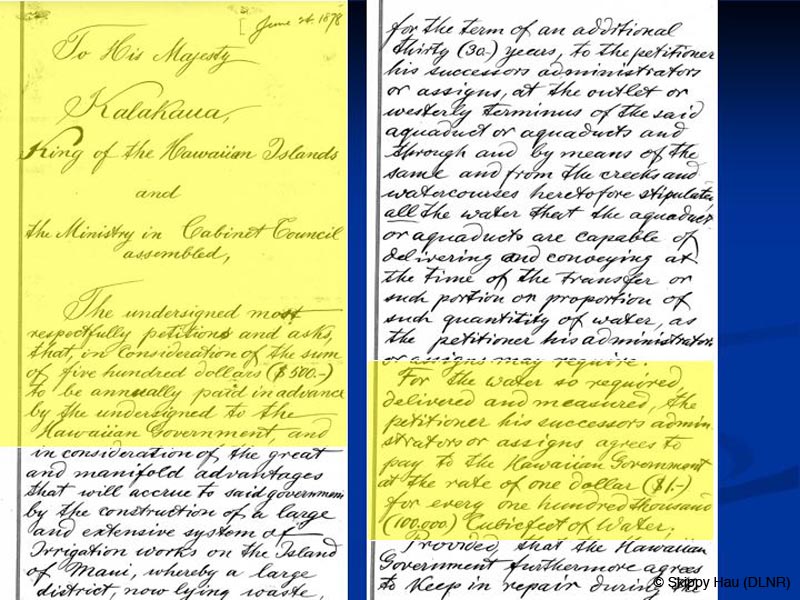 [June 24, 1878
To His Majesty
Kalakaua,
King of the Hawaiian Islands
and
the Ministry in Cabinet Council
assembled,
The undersigned most
respectfully petitions and asks,
that, in Consideration of the sum
of five hundred dollars ($500.-)
to be annually paid in advance
by the undersigned to the
Hawaiian Government, and
in consideration of the great
and manifold advantages
that will accrue to said government
by the construction of a large
and extensive system of
Irrigation works on the Island
of Maui, whereby a large
district, now lying waste,
for the term of an additional
thirty (30-) years, to the petitioner
his successors administrators
or assigns, at the outlet or
westerly terminus of the said
aquaduct or aquaducts and
through and by means of the
same and from the creeks and
watercourses heretofore stipulated
all the water that the aquaduct
or aquaducts are capable of
delivering and conveying at
the time of the transfer or
such portion or proportion of
such quantity of water, as
the petitioner his administrators
or assigns may require.
For the water so required,
delivered and measured, the
petitioner his successors admin-
strators or assigns agrees to
pay to the Hawaiian Government
at the rate of one dollar ($1-)
for every one hundred thousand
(100.000) Cubicfeet of Water.
Provided, that the Hawaiian
Government furthermore agrees
to Keep in repair during the
© Skippy Hau (DLNR)